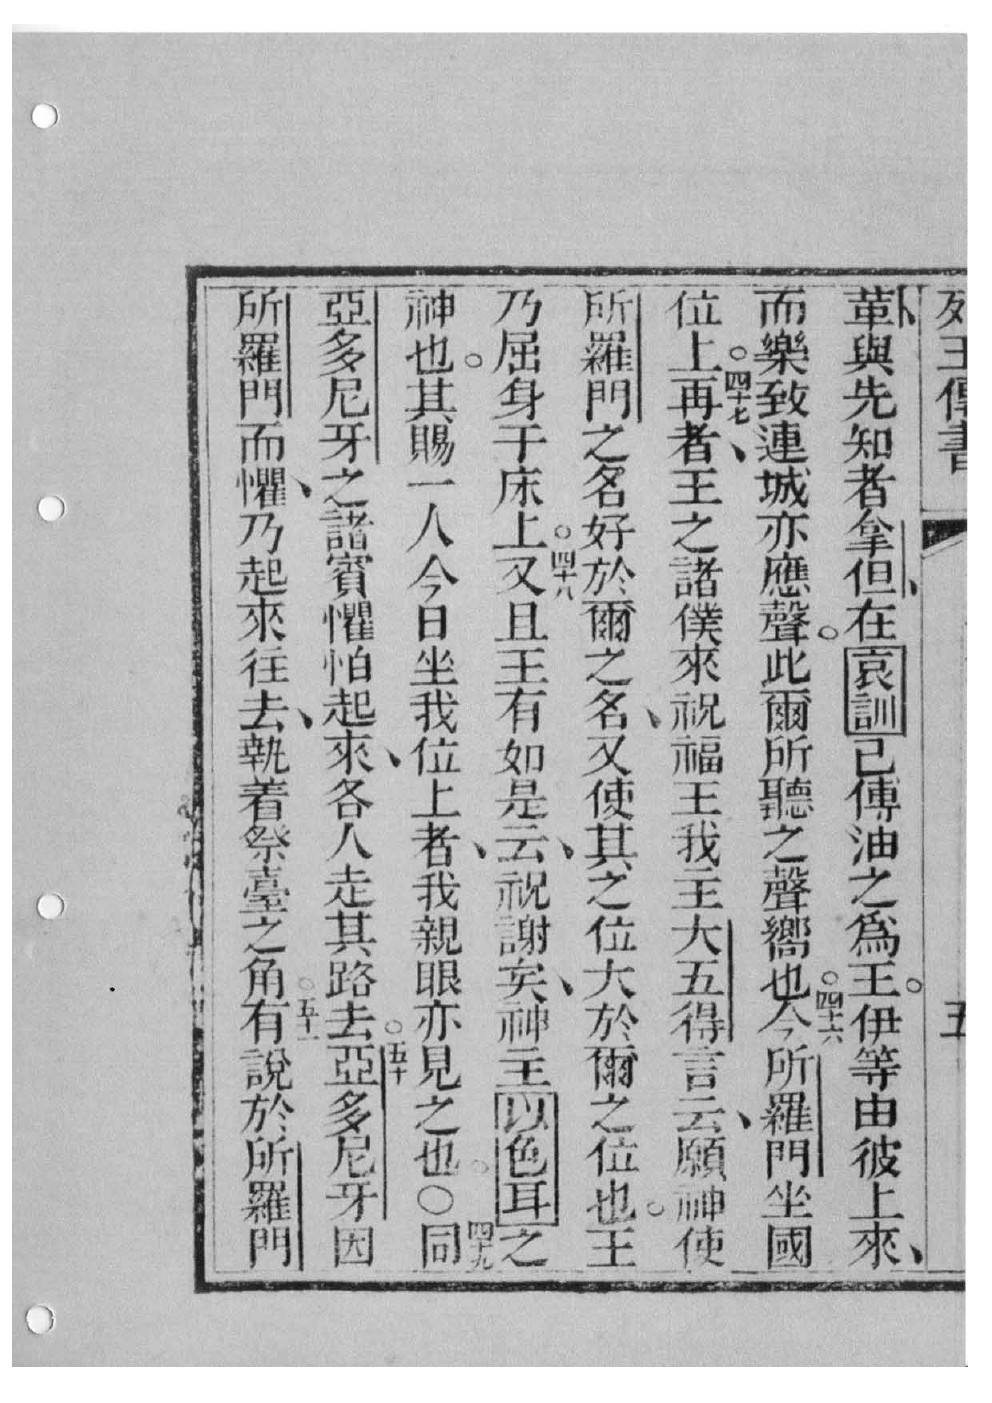 列王傳書
五
革與先知者拿但在哀訓已傅油之爲王。伊等由彼上來、
而樂致連城亦應聲。此爾所聽之聲嚮也。四十六今所羅門坐國
位上。四十七再者、王之諸僕來祝福王我主大五得言云、願神使
所羅門之名好於爾之名、又使其之位大於爾之位也。王
乃屈身于床上。四十八又且王有如是云、祝謝矣、神主以色耳之
神也。其賜一人今日坐我位上者、我親眼亦見之也。〇四十九同
亞多尼牙之諸賓懼怕起來、各人走其路去。五十亞多尼牙因
所羅門而懼、乃起來往去、執着祭臺之角。五十一有說於所羅門